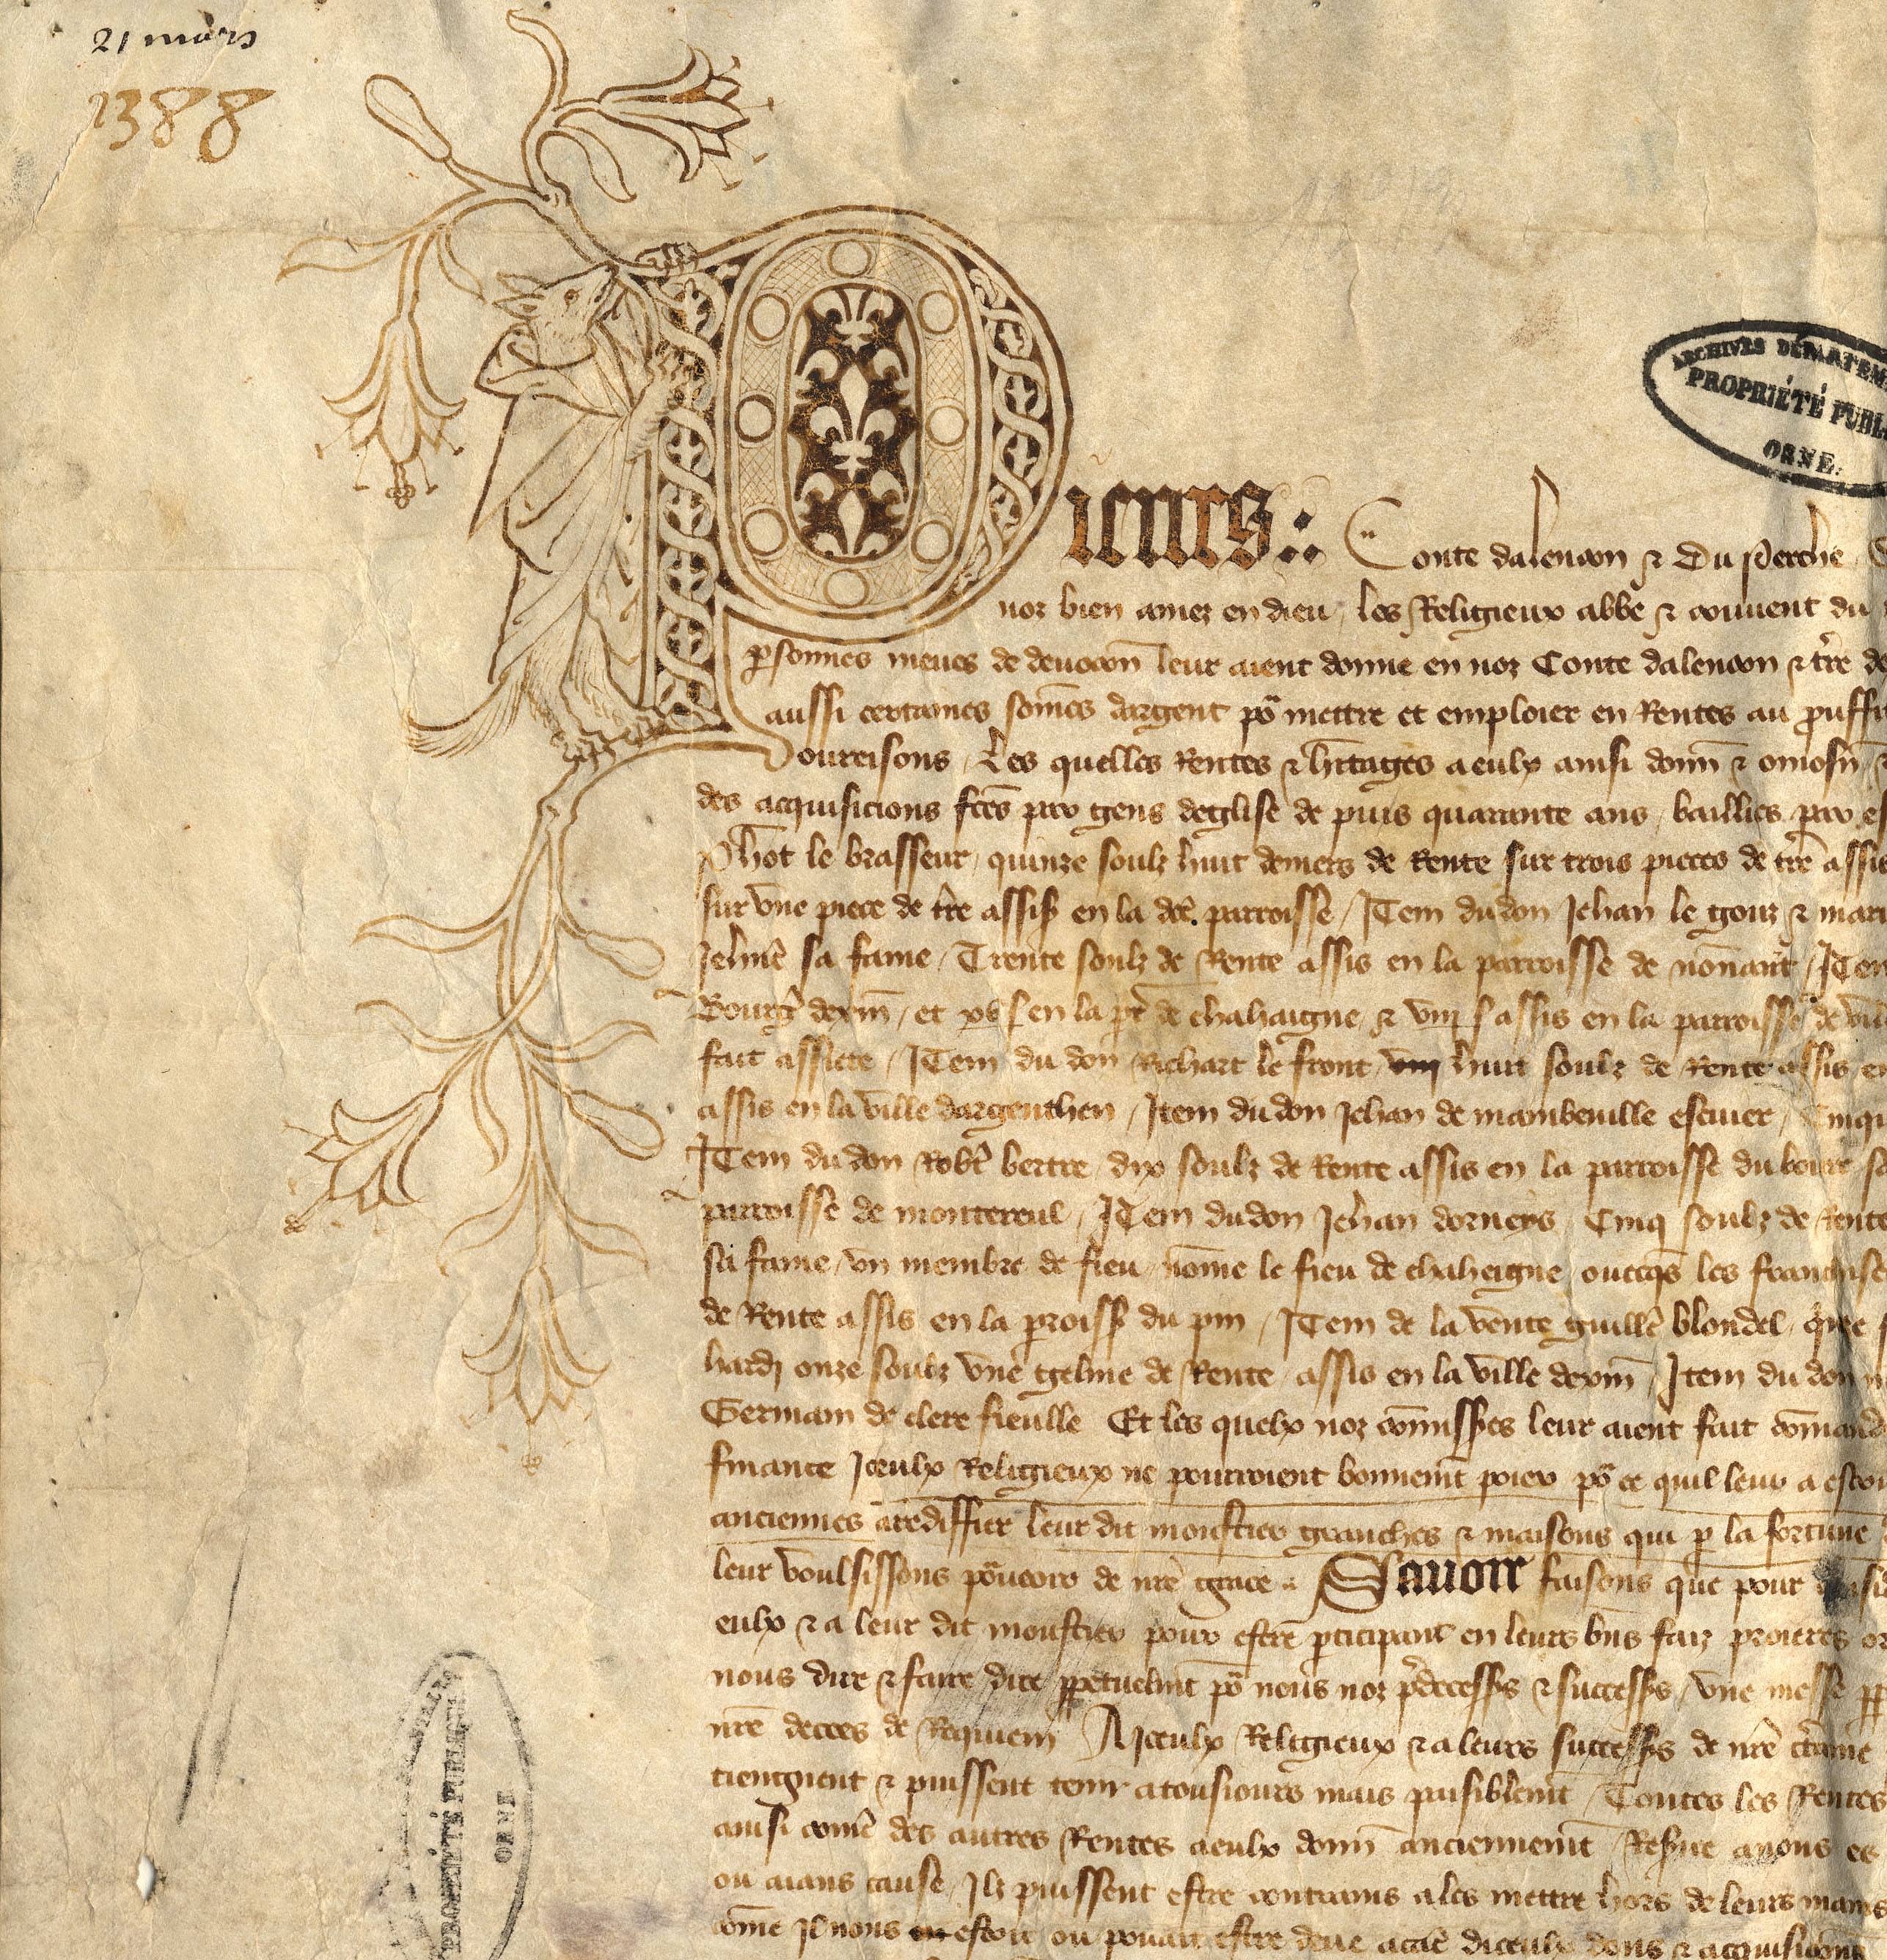 21 mars
1388
ARCHIVES DÉPARTEM
PROPRIÉTÉ PUBL
ORNE.
Pierres: Conte dalencon & du Perche
noz bien amez en dieu / les Religieux abbe & couuent du
psonnes meues de deuocon leur aient donne en noz Conte dalencon & tre de
aussi certaines somes dargent po mettre et emploier en Rentes au prouffit
oureisons / Les quelles Rentes & hitages a eulx ainsi donn & omosn
des acquisicions fces par gens deglise de puis quarante ans / baillies par
Phot le brasseur / quinze soulz huit deniers de Rente sur trois pieces de tre assis
sur vne piece de tre assis en la dce parroisse / Item du don Jehan le gouz & mari
sa fame / Trente soulz de Rente assis en la parroisse de nonant / Item
Bourg dexm / et xv s en la pr de chahaigne & viii s assis en la parroisse de
fait assiete / Item du don Richart le front viii huit soulz de Rente assis en
assis en la ville dargenthen / Item du don Jehan de mambeuille escuier / Cinq
Item du don Robt bertre / dix soulz de Rente assis en la parroisse du bourc
parroisse de montereul / Item du don Jehan dorneys / Cinq soulz de Rente
sa fame / vn membre de fieu nome le fieu de chaheigne / ouecqs les franchise
de Rente assis en la proisse du pin / Item de la vente guille blondel
hardj onze soulz vne geline de Rente / assis en la ville dexm / Item du don
Germain de clere fieulle Et les quelx noz comissres leur aient fait comand
finance Iceulx Religieux ne pourroient bonnemt poier po ce quil leur a
anciennes a redissier leur dit moustier granches & maisons qui p la fortune
leur voulsissons pourueoir de nre grace Sauoir faisons que pour
eulx & a leur dit moustier pour estre pticipant en leurs bns faiz proieres
nous dire & faire dire ppetuelmt po nous noz pdecessrs & successrs / vne messe
nre deces de Requiem A Iceulx Religieux & a leurs successrs de nre ctaine
tiengnent & puissent tenir a tousiours mais paisiblemt / Toutes les Rentes
ainsi come des autres Rentes a eulx donn anciennemt Resue auons
ou aians cause / Ilz puissent estre contrains a les mettre hors de leurs mains
come Il nous estoit ou pouait estre deue a cause diceulx dons & acquisicons
PROPRIÉTÉ PUBLIQUE
ORNE